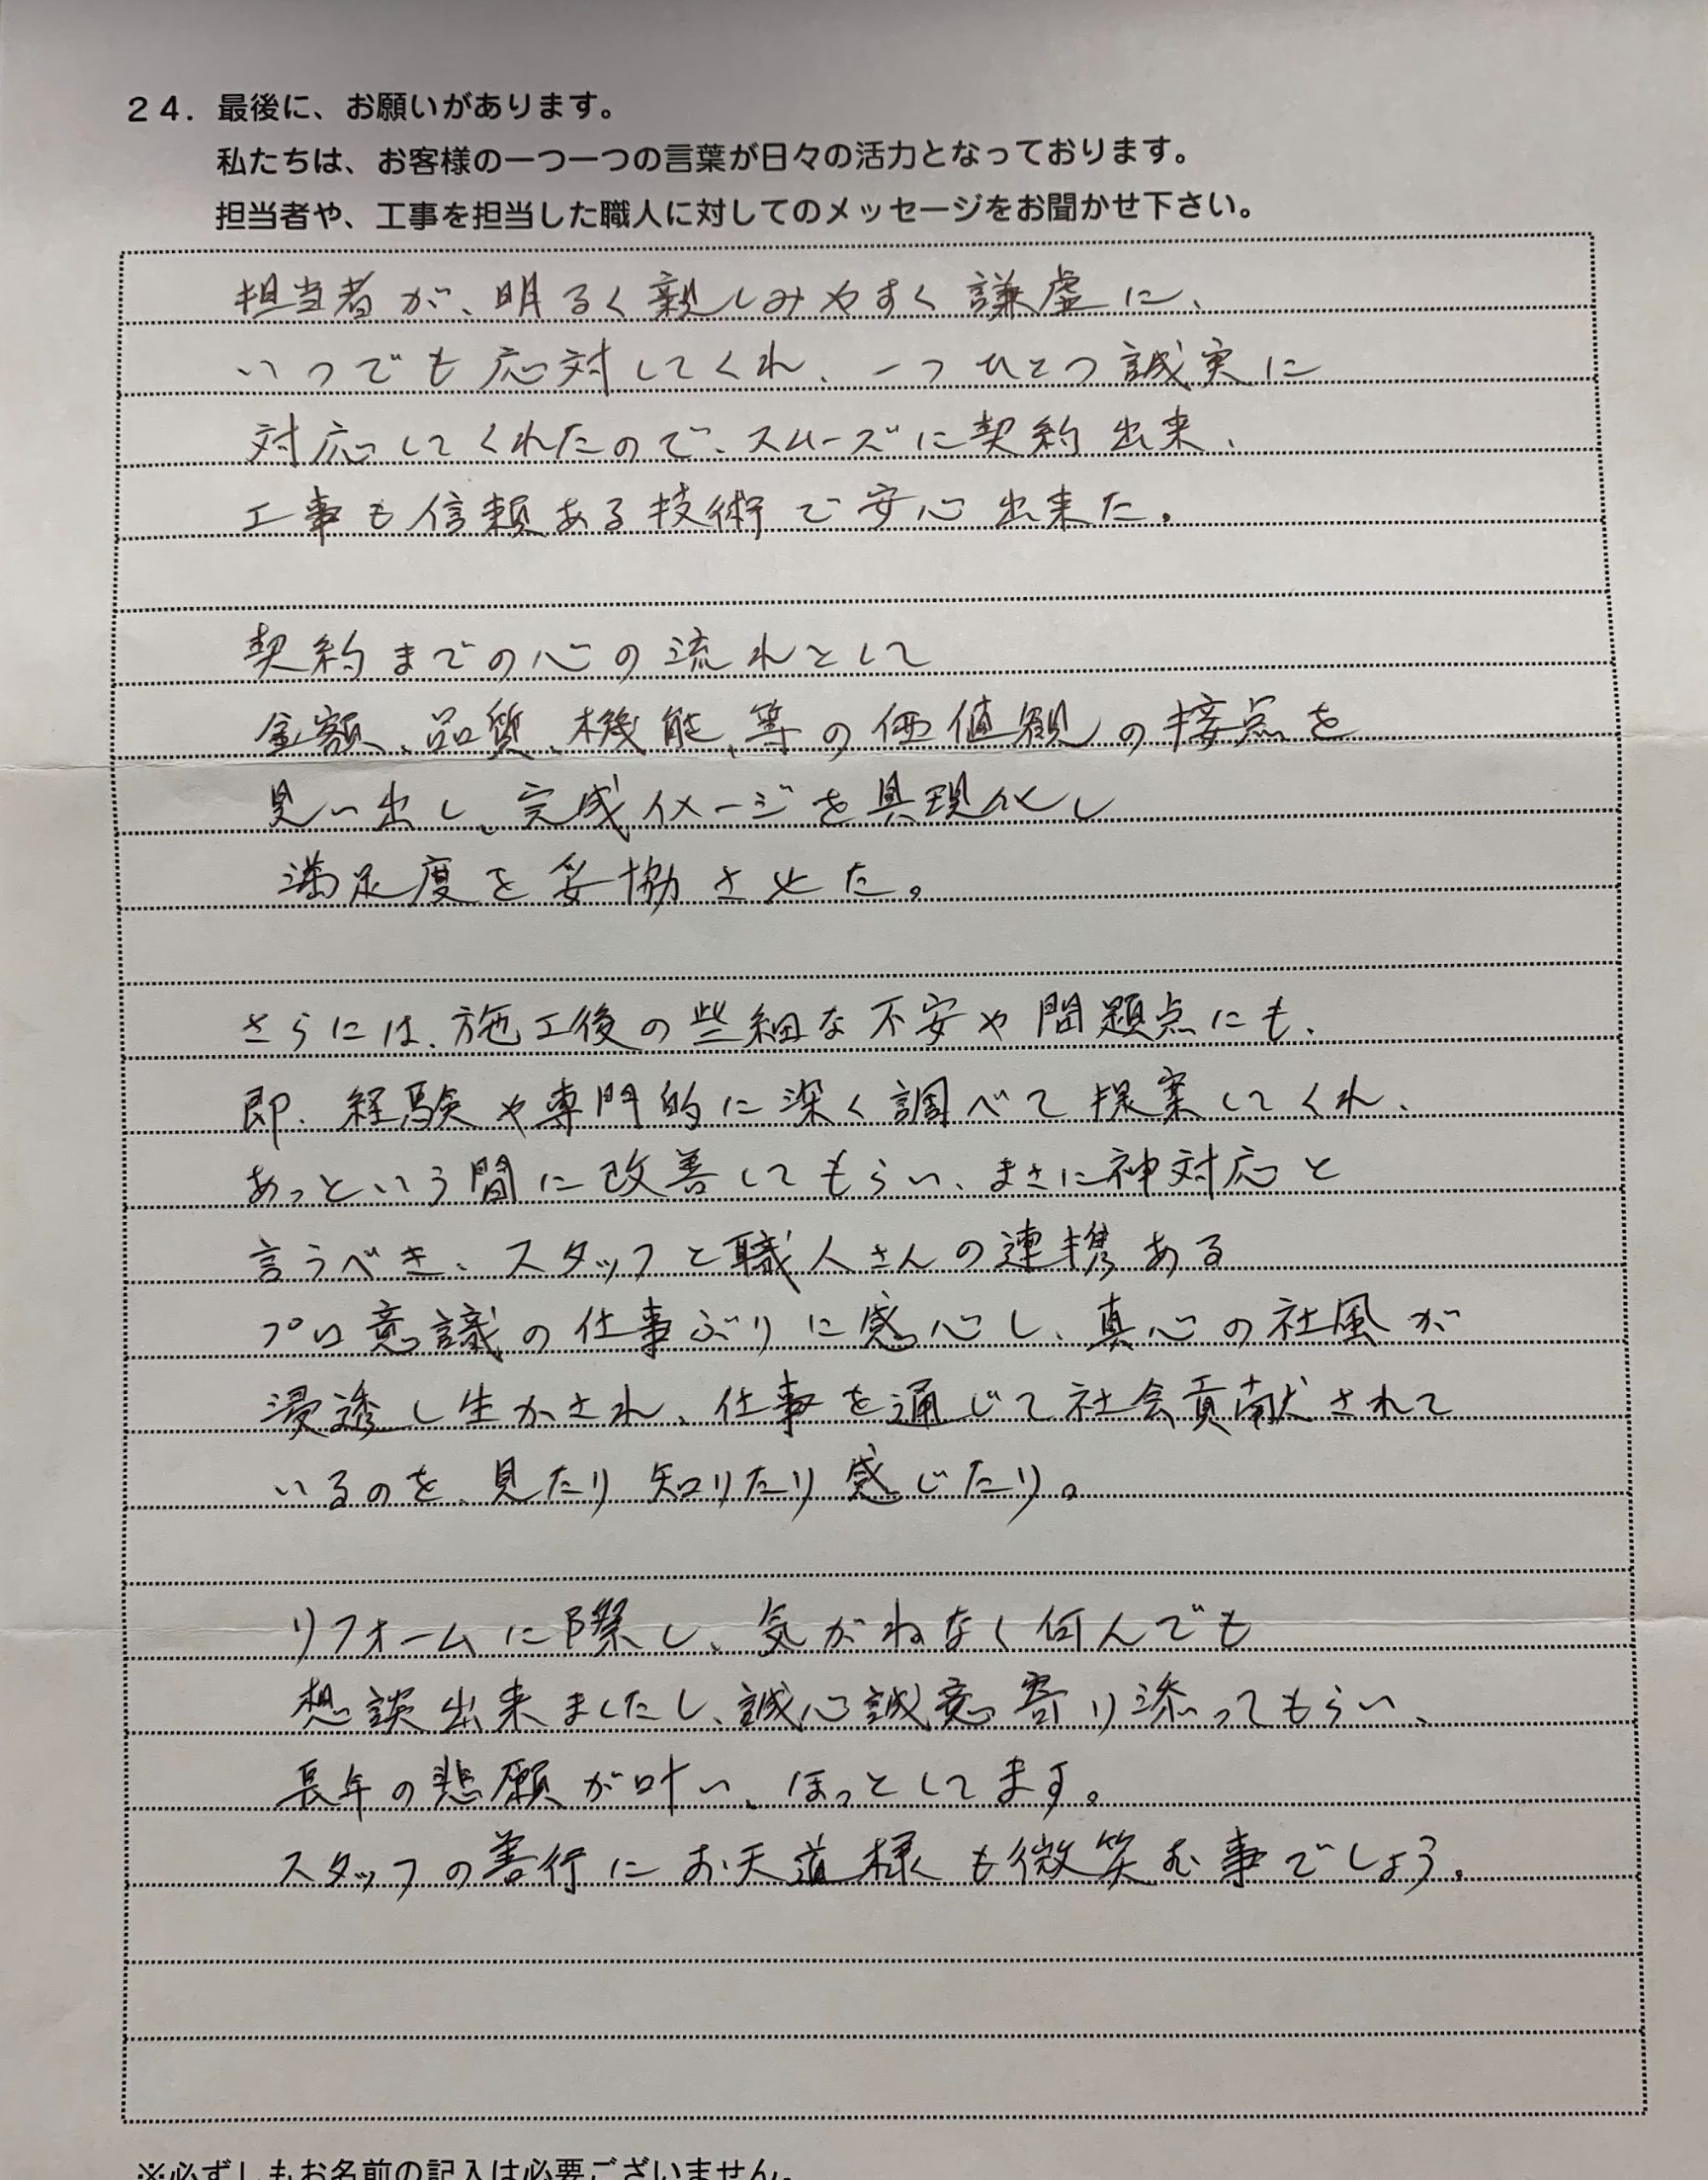 24. 最後に、お願いがあります。
私たちは、お客様の一つ一つの言葉が日々の活力となっております。
担当者や、工事を担当した職人に対してのメッセージをお聞かせ下さい。
担当者が、明るく親しみやすく謙虚に、
いつでも応対してくれ、一つひとつ誠実に
対応してくれたので、スムーズに契約出来、
工事も信頼ある技術で安心出来た。
契約までの心の流れとして
金額、品質、機能、等の価値観の接点を
見い出し、完成イメージを具現化し
満足度を妥協させた。
さらには、施工後の些細な不安や問題点にも、
即、経験や専門的に深く調べて提案してくれ、
あっという間に改善してもらい、まさに神対応と
言うべき、スタッフと職人さんの連携ある
プロ意識の仕事ぶりに感心し、真心の社風が
浸透し生かされ、仕事を通じて社会貢献されて
いるのを、見たり知りたり感じたり。
リフォームに際し、気がねなく何んでも
想談出来ましたし、誠心誠意寄り添ってもらい、
長年の悲願が叶い、ほっとしてます。
スタッフの善行にお天道様も微笑む事でしょう。
※必ずしもお名前の記入は必要ございません。